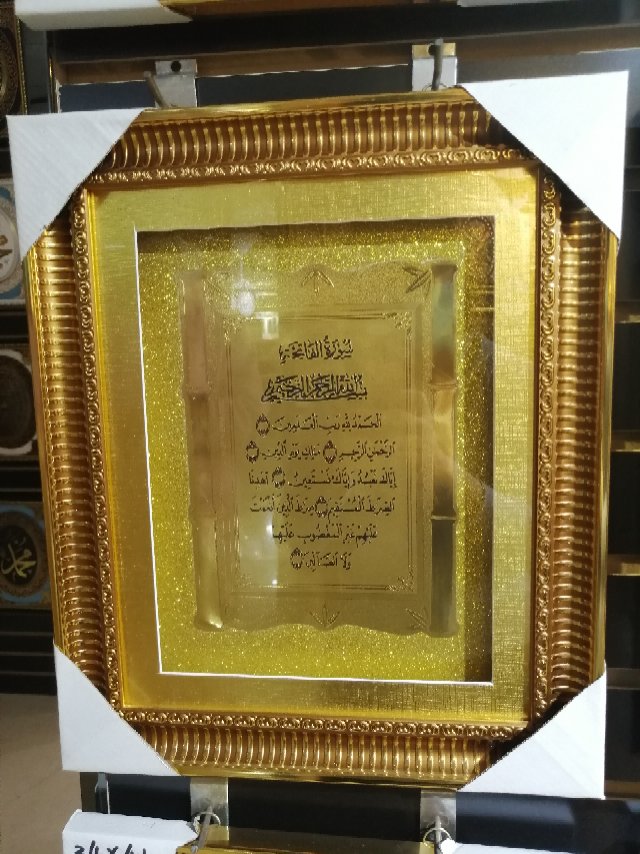 سُورَةُ الفَاتِحَةِ
بِسْمِ اللَّهِ الرَّحْمَٰنِ الرَّحِيمِ
الْحَمْدُ لِلَّهِ رَبِّ الْعَالَمِينَ
الرَّحْمَٰنِ الرَّحِيمِ مَالِكِ يَوْمِ الدِّينِ
إِيَّاكَ نَعْبُدُ وَإِيَّاكَ نَسْتَعِينُ اهْدِنَا
الصِّرَاطَ الْمُسْتَقِيمَ صِرَاطَ الَّذِينَ أَنْعَمْتَ
عَلَيْهِمْ غَيْرِ الْمَغْضُوبِ عَلَيْهِمْ
وَلَا الضَّالِّينَ
محمد